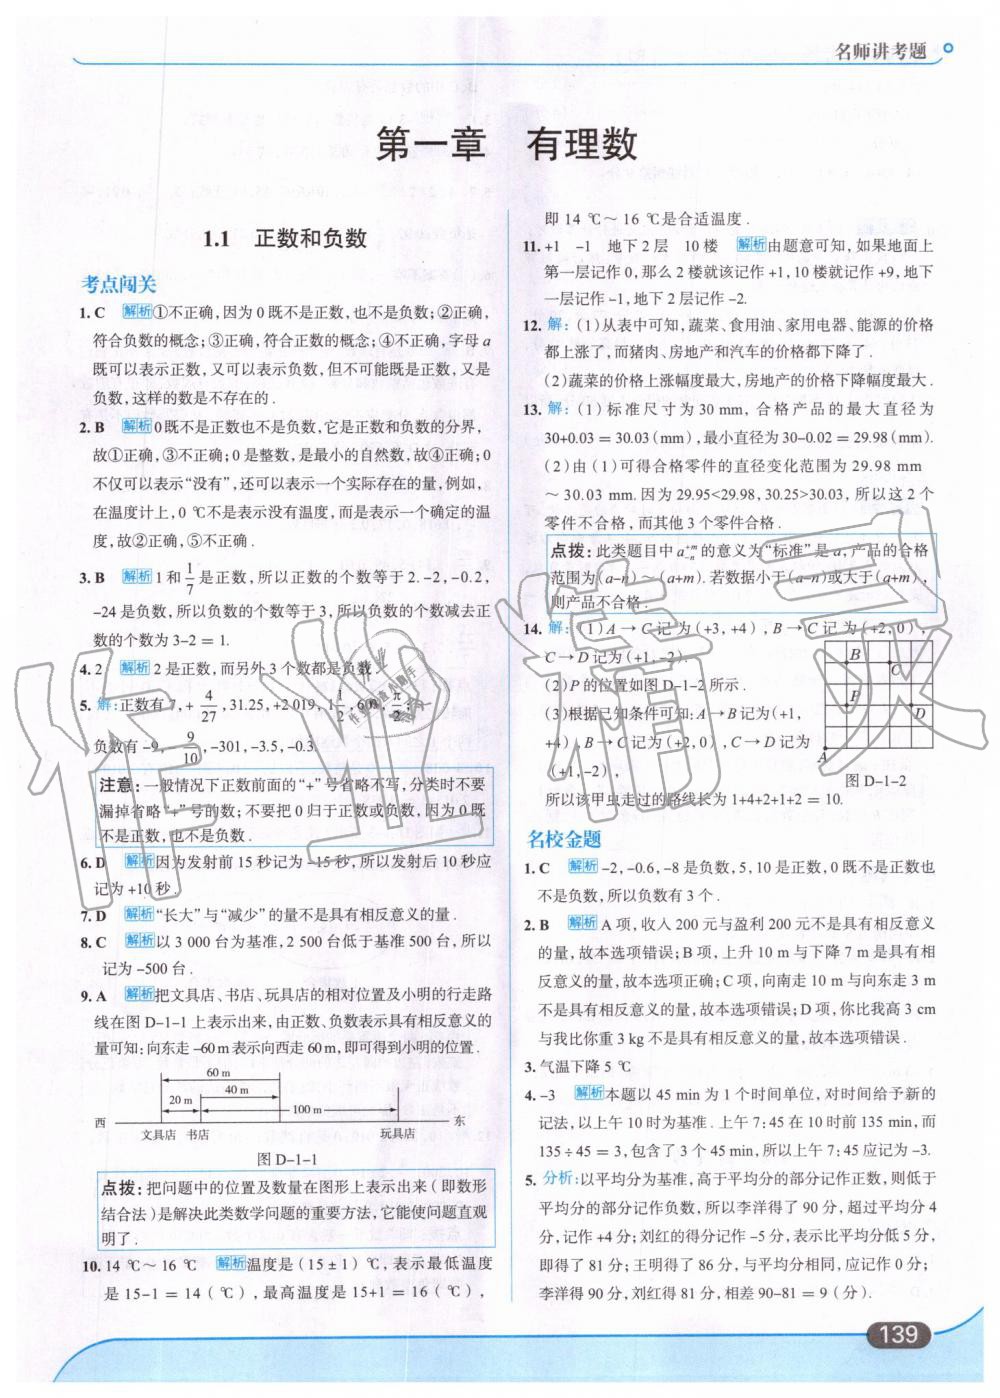 名师讲考题
第一章 有理数
1.1 正数和负数
考点闯关
1. C 解析①不正确,因为0既不是正数,也不是负数;②正确,
符合负数的概念;③正确,符合正数的概念;④不正确,字母a
既可以表示正数,又可以表示负数,但不可能既是正数,又是
负数,这样的数是不存在的.
2. B 解析0既不是正数也不是负数,它是正数和负数的分界,
故①正确,③不正确;0是整数,是最小的自然数,故④正确;0
不仅可以表示“没有”,还可以表示一个实际存在的量,例如,
在温度计上,0 ℃不是表示没有温度,而是表示一个确定的温
度,故②正确,⑤不正确.
3. B 解析1和1/7是正数,所以正数的个数等于2.-2,-0.2,
-24是负数,所以负数的个数等于3,所以负数的个数减去正
数的个数为3-2=1.
4. 2 解析2是正数,而另外3个数都是负数.
5. 解:正数有7,+4/27,31.25,+2 019,1 1/2,60%,π/2;
负数有-9,-9/10,-301,-3.5,-0.3.
注意:一般情况下正数前面的“+”号省略不写,分类时不要
漏掉省略“+”号的数;不要把0归于正数或负数,因为0既
不是正数,也不是负数.
6. D 解析因为发射前15秒记为-15秒,所以发射后10秒应
记为+10秒.
7. D 解析“长大”与“减少”的量不是具有相反意义的量.
8. C 解析以3 000台为基准,2 500台低于基准500台,所以
记为-500台.
9. A 解析把文具店、书店、玩具店的相对位置及小明的行走路
线在图D-1-1上表示出来,由正数、负数表示具有相反意义的
量可知:向东走-60 m表示向西走60 m,即可得到小明的位置.
60 m
40 m
20 m
100 m
西 东
文具店 书店 玩具店
图D-1-1
点拨:把问题中的位置及数量在图形上表示出来(即数形
结合法)是解决此类数学问题的重要方法,它能使问题直观
明了.
10. 14 ℃~16 ℃ 解析温度是(15±1)℃,表示最低温度
是15-1=14(℃),最高温度是15+1=16(℃),
即14 ℃~16 ℃是合适温度.
11. +1 -1 地下2层 10楼 解析由题意可知,如果地面上
第一层记作0,那么2楼就该记作+1,10楼就记作+9,地下
一层记作-1,地下2层记作-2.
12. 解:(1)从表中可知,蔬菜、食用油、家用电器、能源的价格
都上涨了,而猪肉、房地产和汽车的价格都下降了.
(2)蔬菜的价格上涨幅度最大,房地产的价格下降幅度最大.
13. 解:(1)标准尺寸为30 mm,合格产品的最大直径为
30+0.03=30.03(mm),最小直径为30-0.02=29.98(mm).
(2)由(1)可得合格零件的直径变化范围为29.98 mm
~30.03 mm.因为29.95<29.98,30.25>30.03,所以这2个
零件不合格,而其他3个零件合格.
点拨:此类题目中a+m-n的意义为“标准”是a,产品的合格
范围为(a-n)~(a+m).若数据小于(a-n)或大于(a+m),
则产品不合格.
14. 解:(1)A→C记为(+3,+4),B→C记为(+2,0),
C→D记为(+1,-2).
(2)P的位置如图D-1-2所示.
(3)根据已知条件可知:A→B记为(+1,
+4),B→C记为(+2,0),C→D记为
(+1,-2),
B
C
P
D
A
图D-1-2
所以该甲虫走过的路线长为1+4+2+1+2=10.
名校金题
1. C 解析-2,-0.6,-8是负数,5,10是正数,0既不是正数也
不是负数,所以负数有3个.
2. B 解析A项,收入200元与盈利200元不是具有相反意义
的量,故本选项错误;B项,上升10 m与下降7 m是具有相
反意义的量,故本选项正确;C项,向南走10 m与向东走3 m
不是具有相反意义的量,故本选项错误;D项,你比我高3 cm
与我比你重3 kg不是具有相反意义的量,故本选项错误.
3. 气温下降5 ℃
4. -3 解析本题以45 min为1个时间单位,对时间给予新的
记法,以上午10时为基准.上午7:45在10时前135 min,而
135÷45=3,包含了3个45 min,所以上午7:45应记为-3.
5. 分析:以平均分为基准,高于平均分的部分记作正数,则低于
平均分的部分记作负数,所以李洋得了90分,超过平均分4
分,记作+4分;刘红的得分记作-5分,表示比平均分低5分,
即得了81分;王明得了86分,与平均分相同,应记作0分;
李洋得90分,刘红得81分,相差90-81=9(分).
139
作业精灵